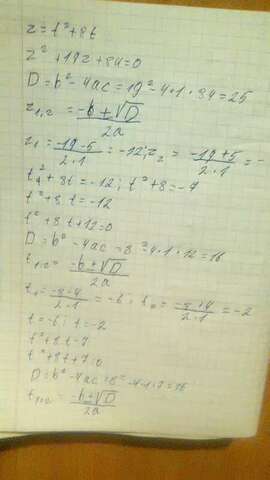 z=t²+8t
z²+19z+84=0
D=b²-4ac=19²-4·1·84=25
z₁,₂=(-b±√D)/2a
z₁=(-19-5)/2·1=-12; z₂=(-19+5)/2·1=-
t²+8t=-12; t²+8=-7
t²+8t=-12
t²+8t+12=0
D=b²-4ac=8²-4·1·12=16
t₁,₂=(-b±√D)/2a
t₁=(-8-4)/2·1=-6; t₂=(-8+4)/2·1=-2
t=-6; t=-2
t²+8t-7
t²+8t+7=0
D=b²-4ac=8²-4·1·7=16
t₁,₂=(-b±√D)/2a